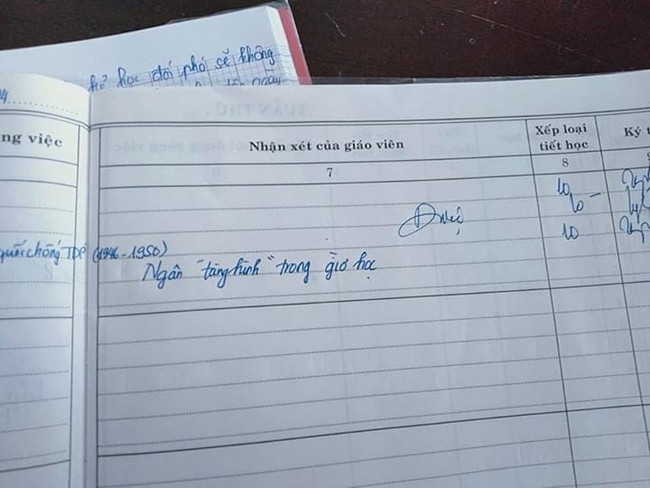 học đối phó sẽ không
ng việc
Nhận xét của giáo viên
Xếp loại
tiết học
Ký t
7
8
10
10 -
Được
10
quốc chống TDP (1946-1950)
Ngân "tàng hình" trong giờ học